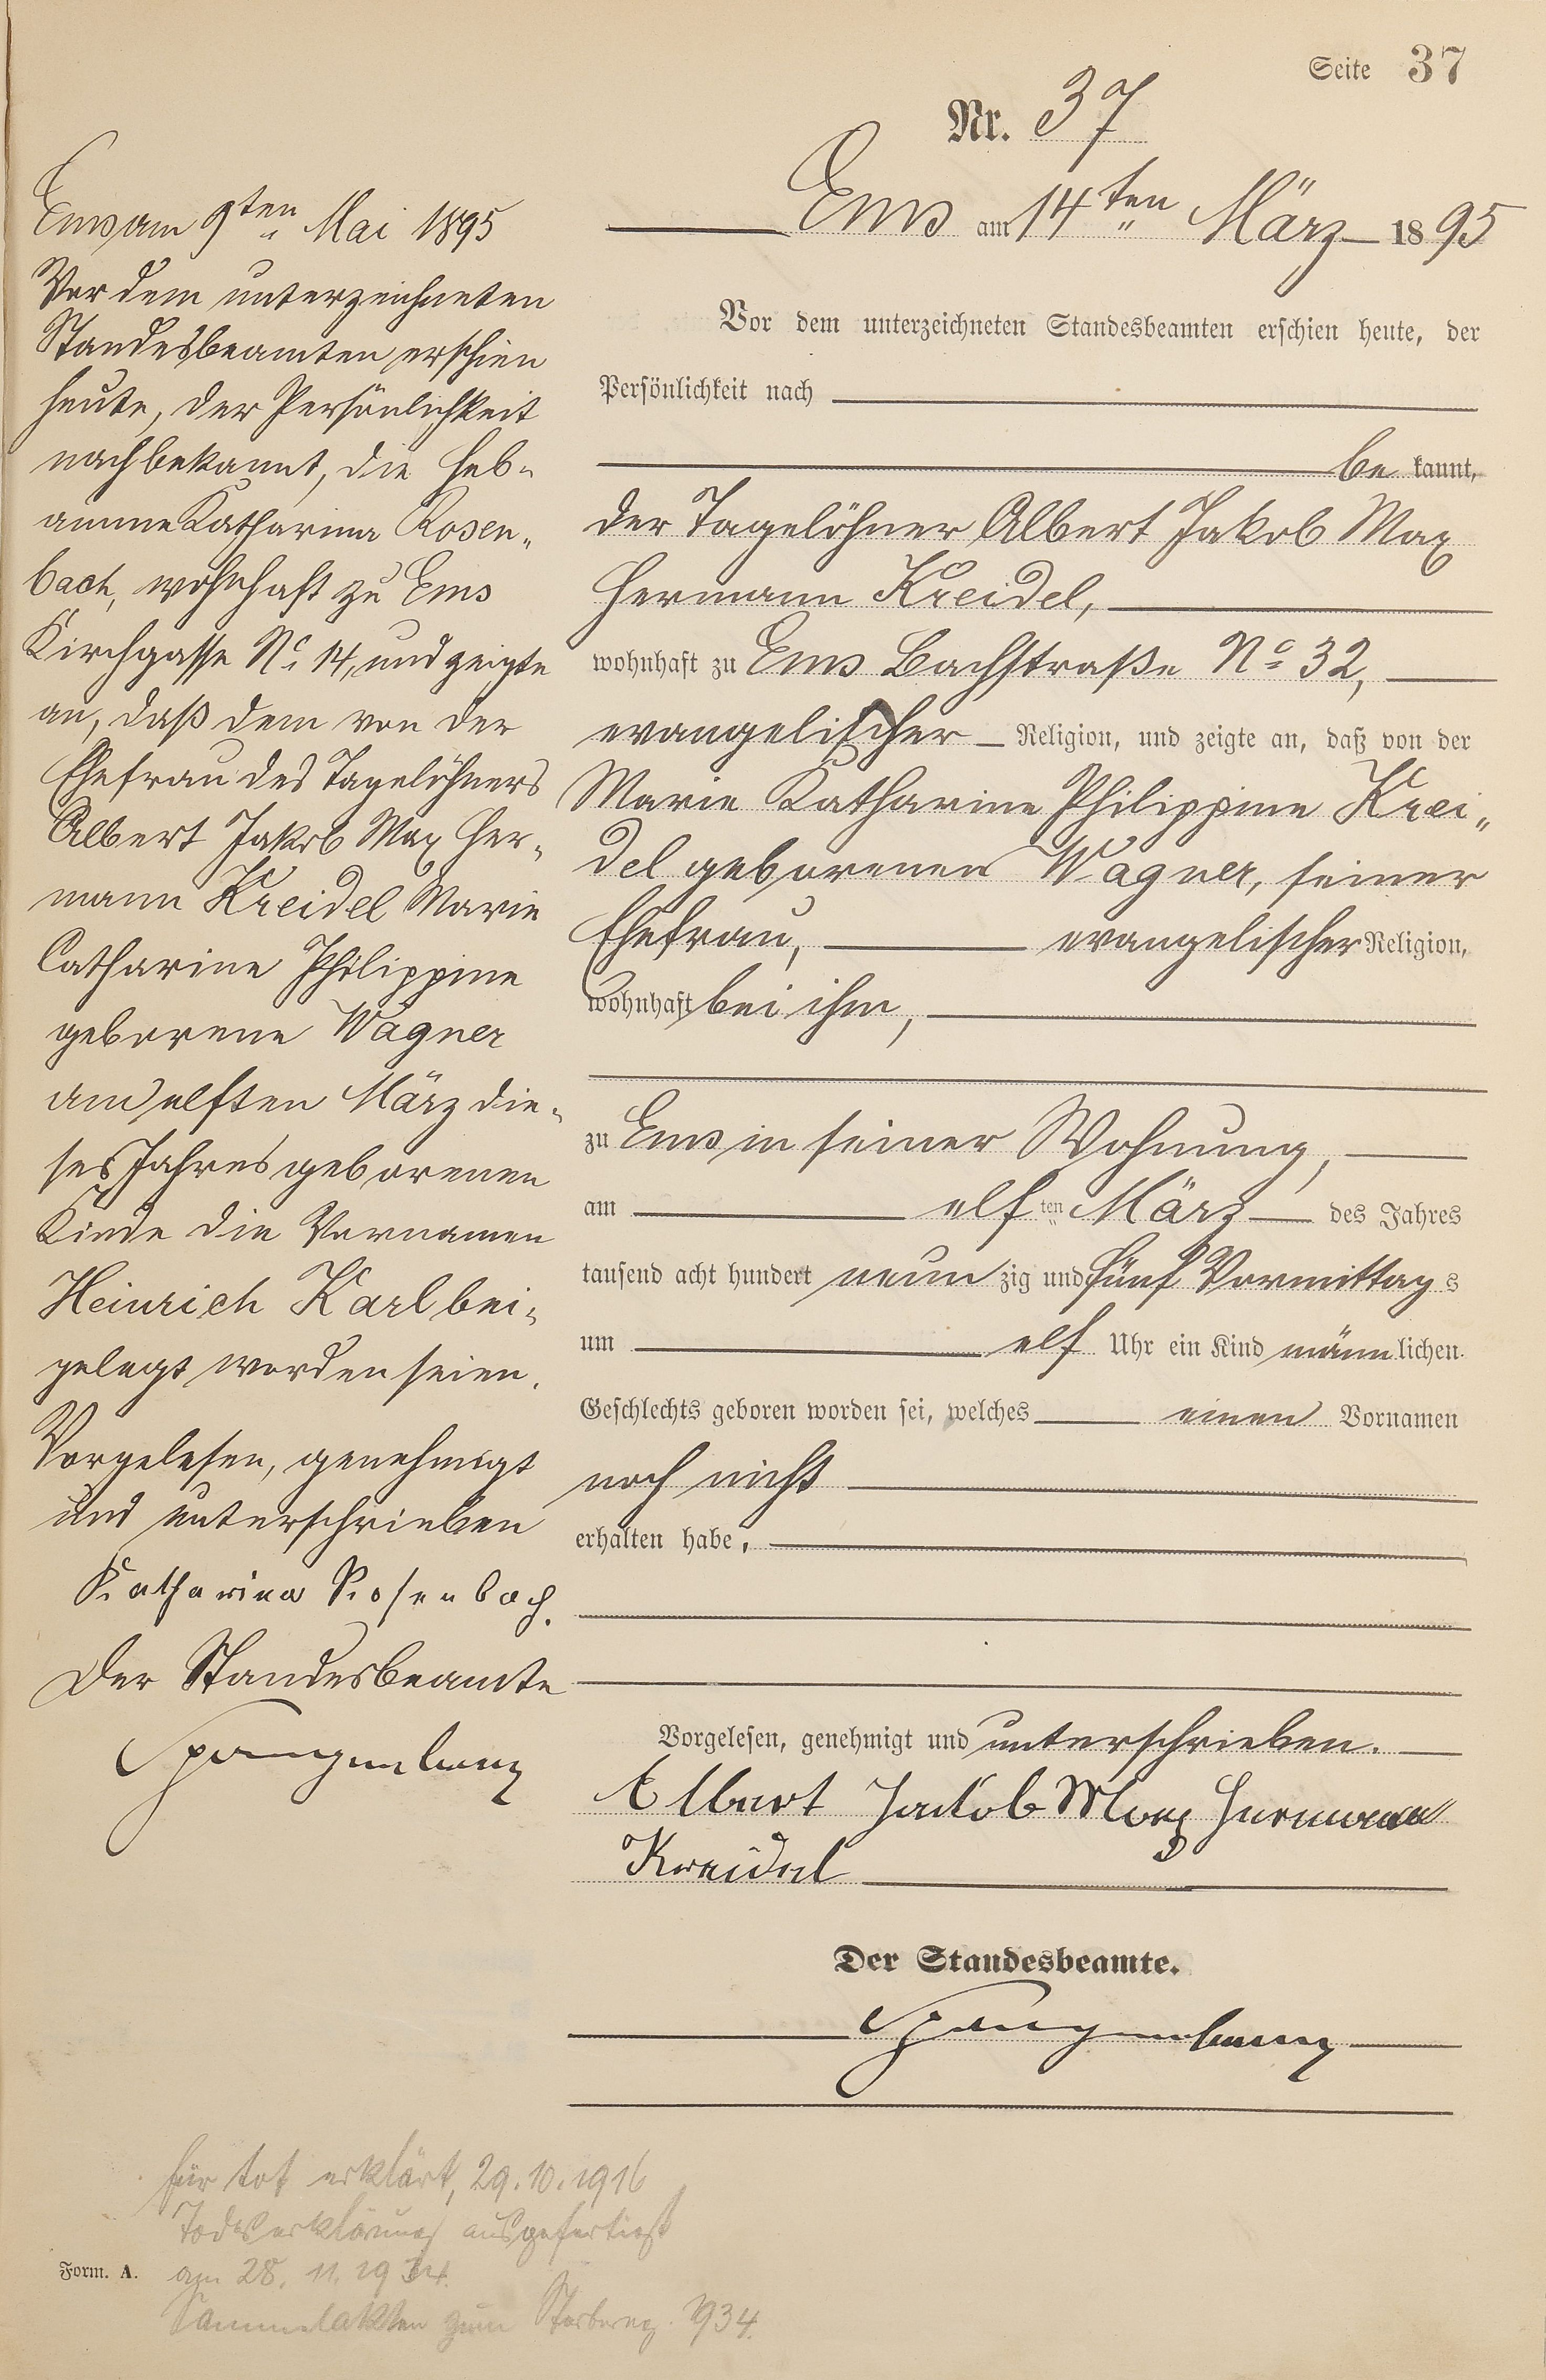 Seite 37
Nr. 37
Ems am 14ten März 1895
Vor dem unterzeichneten Standesbeamten erschien heute, der
Persönlichkeit nach
be kannt,
der Tagelöhner Albert Jakob Max
Hermann Kreidel,
wohnhaft zu Ems Bachstraße No 32,
evangelischer Religion, und zeigte an, daß von der
Marie Katharine Philippine Krei„
del geborenen Wagner, seiner
Ehefrau, evangelischer Religion,
wohnhaft bei ihm,
zu Ems in seiner Wohnung,
am elf ten März des Jahres
tausend acht hundert neun zig und fünf Vormittag s
um elf Uhr ein Kind männ lichen
Geschlechts geboren worden sei, welches einen Vornamen
noch nicht
erhalten habe.
Vorgelesen, genehmigt und unterschrieben.
Albert Jackob Max Hermann
Kreidel
Der Standesbeamte.
Spangenberg
Ems am 9ten Mai 1895
Vor dem unterzeichneten
Standesbeamten erschien
heute, der Persönlichkeit
nach bekannt, die Heb„
amme Katharina Rosen„
bach, wohnhaft zu Ems
Kirchgasse No 14, und zeigte
an, daß dem von der
Ehefrau des Tagelöhners
Albert Jakob Max Her„
mann Kreidel Marie
Catharine Philippine
geborene Wagner
am elften März die„
ses Jahres geborenen
Kinde die Vornamen
Heinrich Karl bei„
gelegt worden seien.
Vorgelesen, genehmigt
und unterschrieben
Katharina Rosenbach.
Der Standesbeamte
Spangenberg
für tot erklärt, 29.10.1916
Todeserklärung ausgefertigt
am 28. 11. 1934.
Sammelakten zum Sterbereg. 1934.
Form. A.